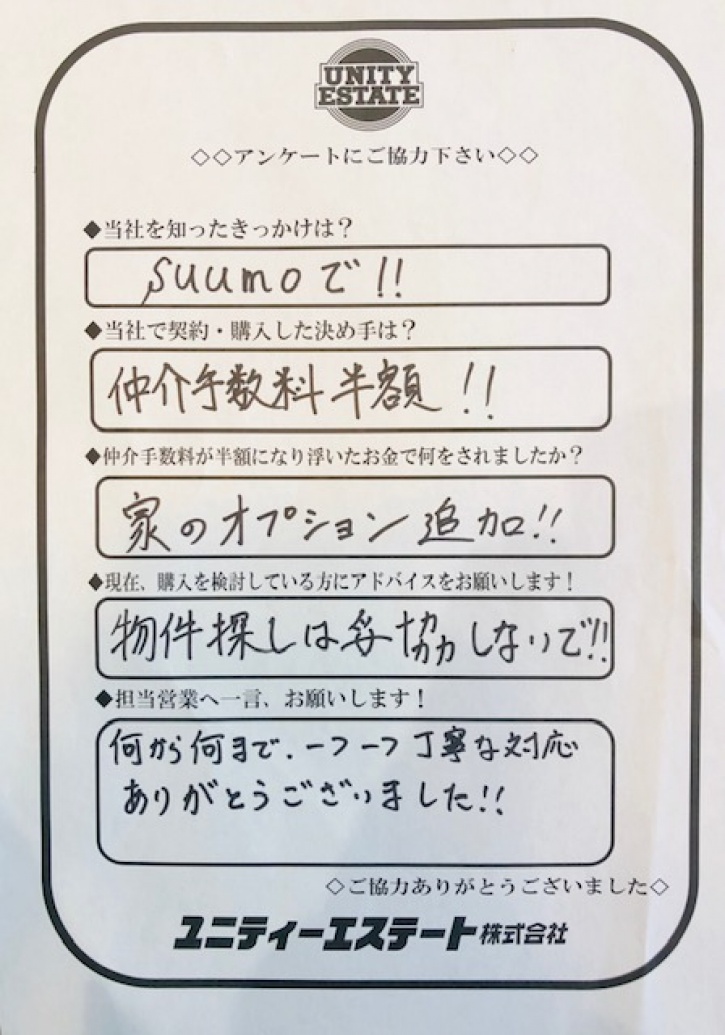 UNITY
ESTATE
◇◇アンケートにご協力下さい◇◇
◆当社を知ったきっかけは？
suumoで!!
◆当社で契約・購入した決め手は？
仲介手数料半額!!
◆仲介手数料が半額になり浮いたお金で何をされましたか？
家のオプション追加!!
◆現在、購入を検討している方にアドバイスをお願いします！
物件探しは妥協しないで!!
◆担当営業へ一言、お願いします！
何から何まで、一つ一つ丁寧な対応
ありがとうございました!!
◇ご協力ありがとうございました◇
ユニティーエステート株式会社